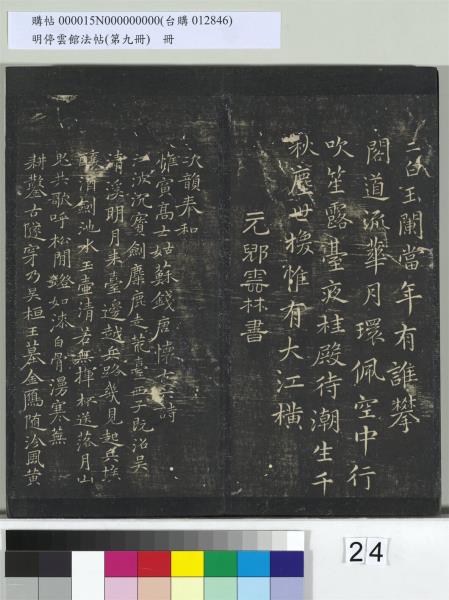 購帖 000015N000000000(台購 012846)
明停雲館法帖(第九冊) 冊
白玉闌當年有誰攀
閣道流華月環佩空中行
吹笙露臺夜桂殿待潮生千
秋塵世換惟有大江橫
元鄉雲林書
次韻奉和
惟寅高士姑蘇錢唐懷古詩
江波沈寶劍麋鹿走荒臺西子既沼吳
清溪明月來臺邊越兵路幾見起兵
劍池水玉壺清若無揮杯送落月山
鬼共歌呼松間燈如漆白骨寒無
耕鑿古隧穿乃吳桓王墓金鴈隨冷風黃
24